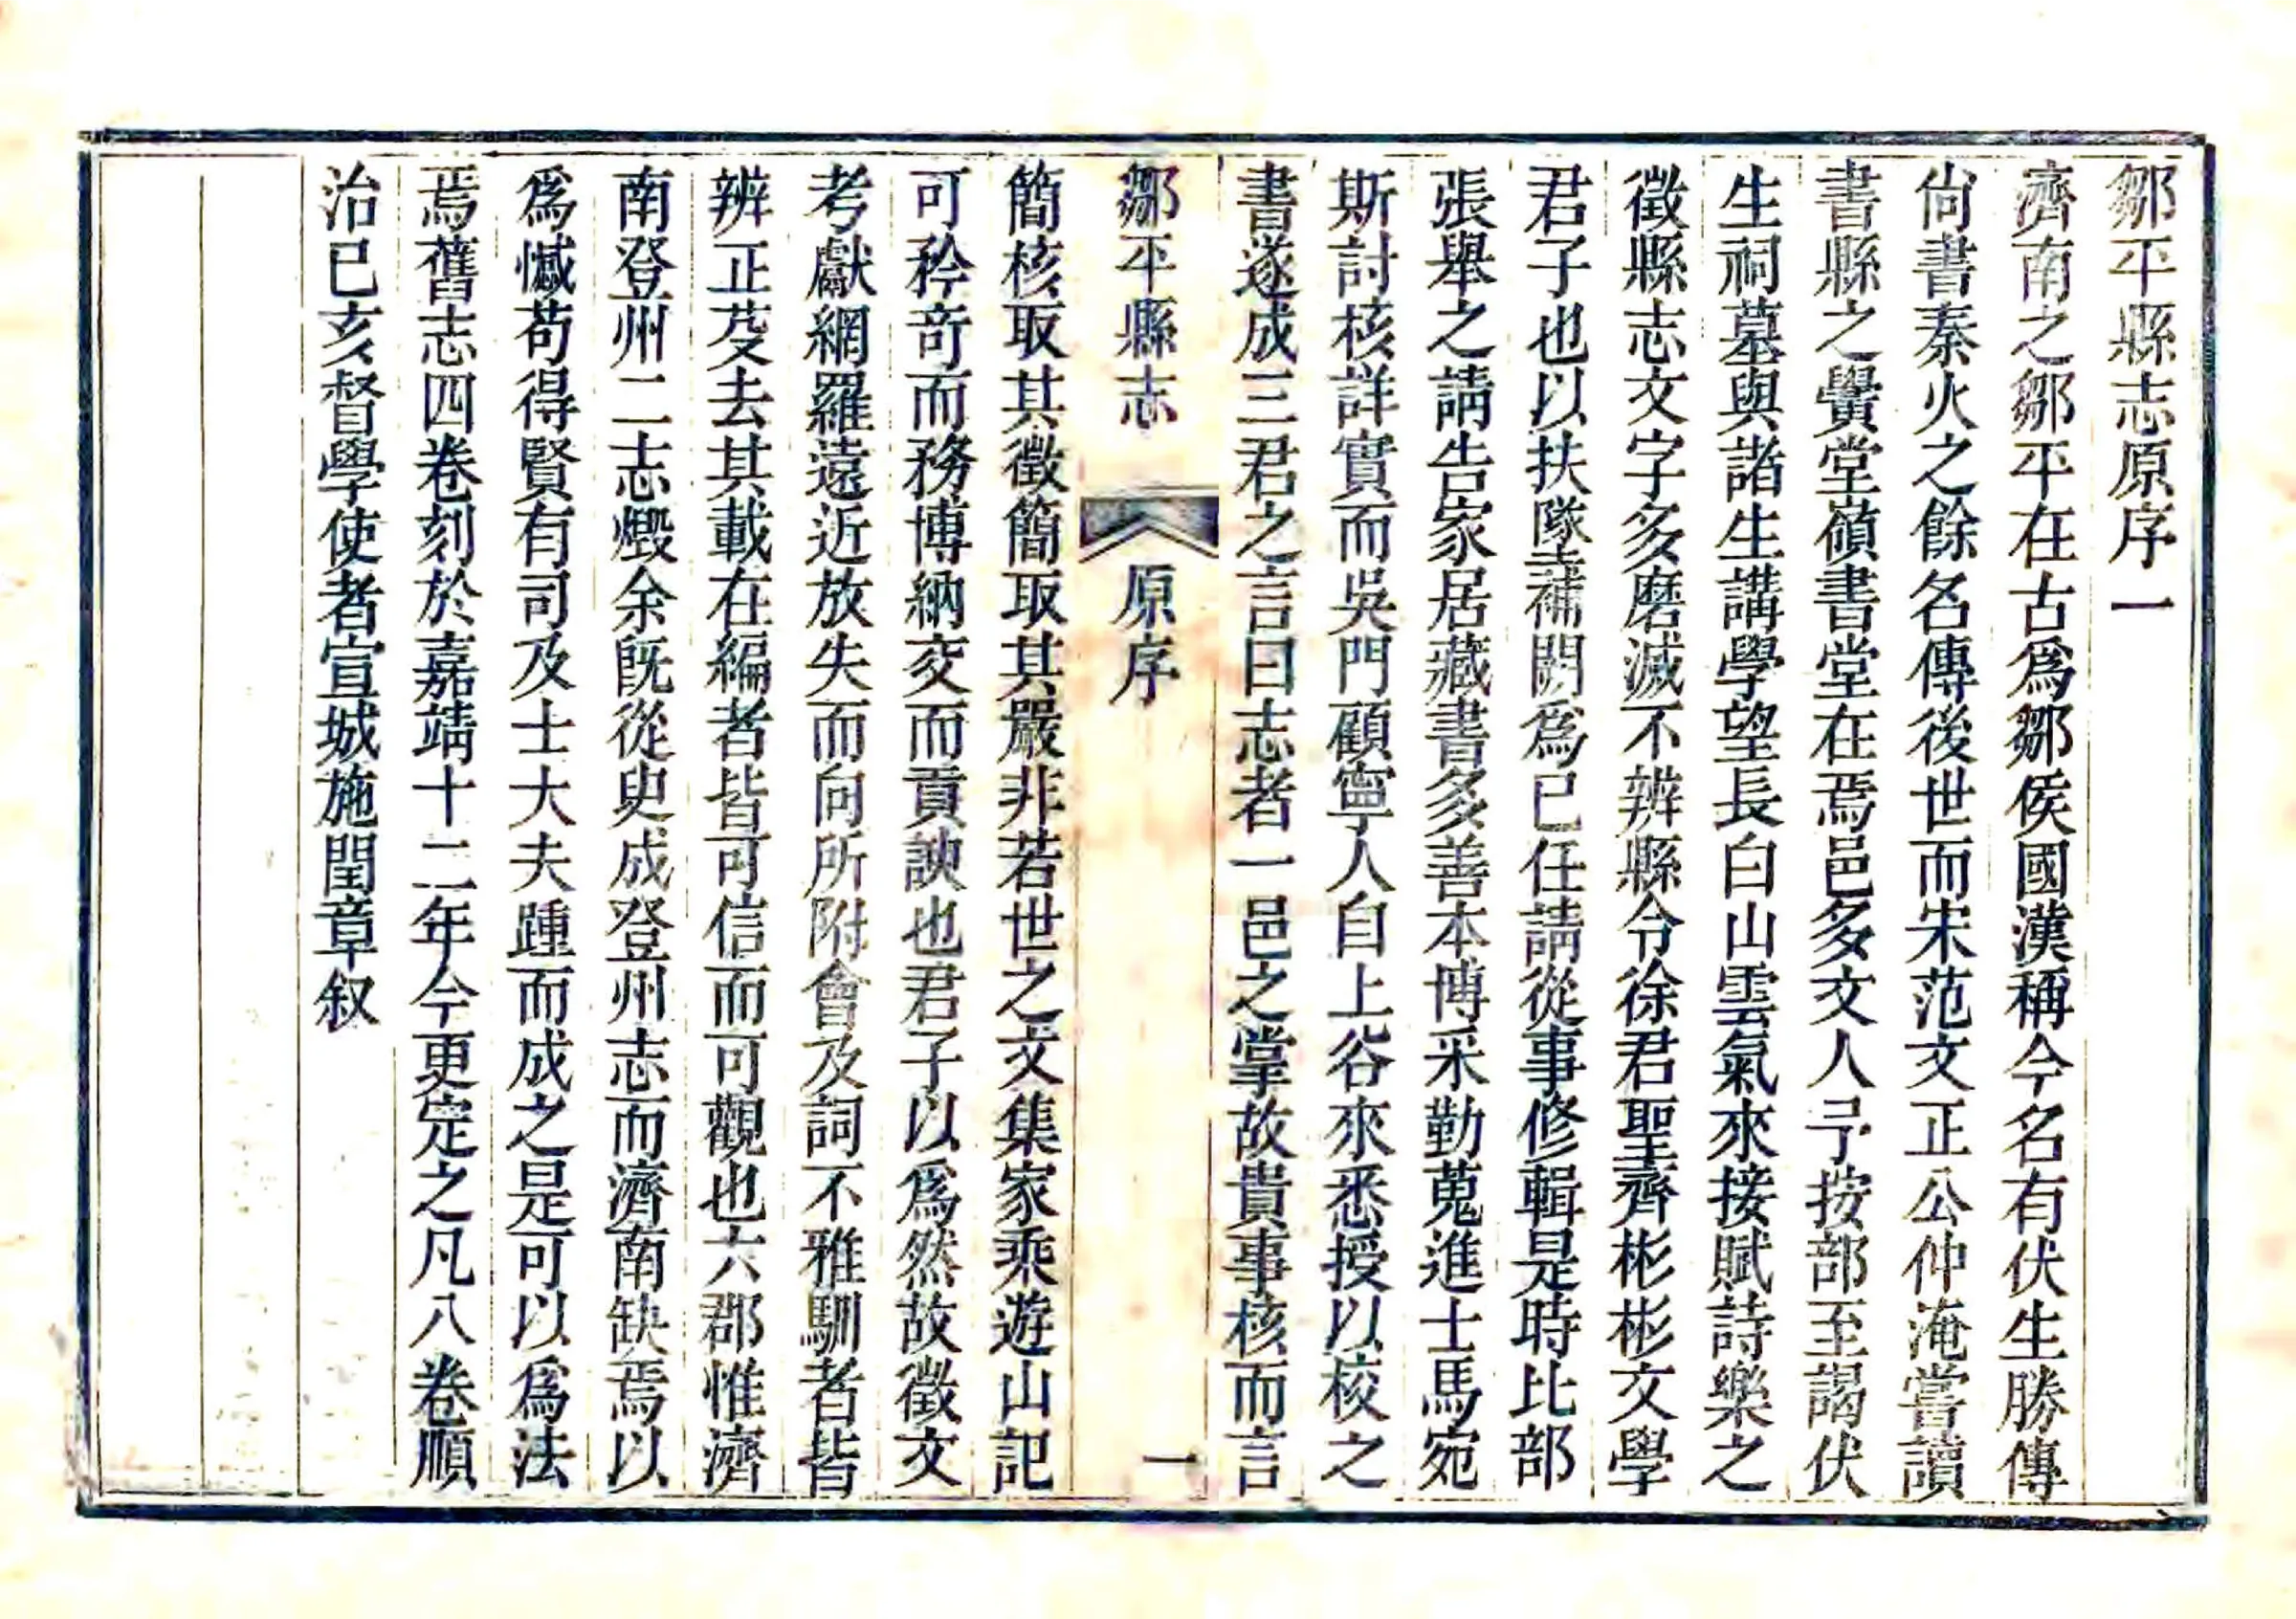 鄒平縣志原序一
濟南之鄒平在古爲鄒侯國漢稱今名有伏生勝傳
尙書秦火之餘名傳後世而宋范文正公仲淹嘗讀
書縣之黌堂嶺書堂在焉邑多文人予按部至謁伏
生祠墓與諸生講學望長白山雲氣來接賦詩樂之
徵縣志文字多磨滅不辨縣令徐君聖齊彬彬文學
君子也以扶墜補闕爲已任請從事修輯是時比部
張舉之請告家居藏書多善本博采勤蒐進士馬宛
斯討核詳實而吳門顧寧人自上谷來悉授以校之
書遂成三君之言曰志者一邑之掌故貴事核而言
鄒平縣志 原序 一
簡核取其徵簡取其嚴非若世之文集家乘遊山記
可矜竒而務博納交而貢諛也君子以爲然故徵文
考獻網羅遠近放失而向所附會及詞不雅馴者皆
辨正芟去其載在編者皆可信而可觀也六郡惟濟
南登州二志燬余旣從史成登州志而濟南缺焉以
爲憾茍得賢有司及士大夫踵而成之是可以爲法
焉舊志四卷刻於嘉靖十二年今更定之凡八卷順
治已亥督學使者宣城施閏章叙